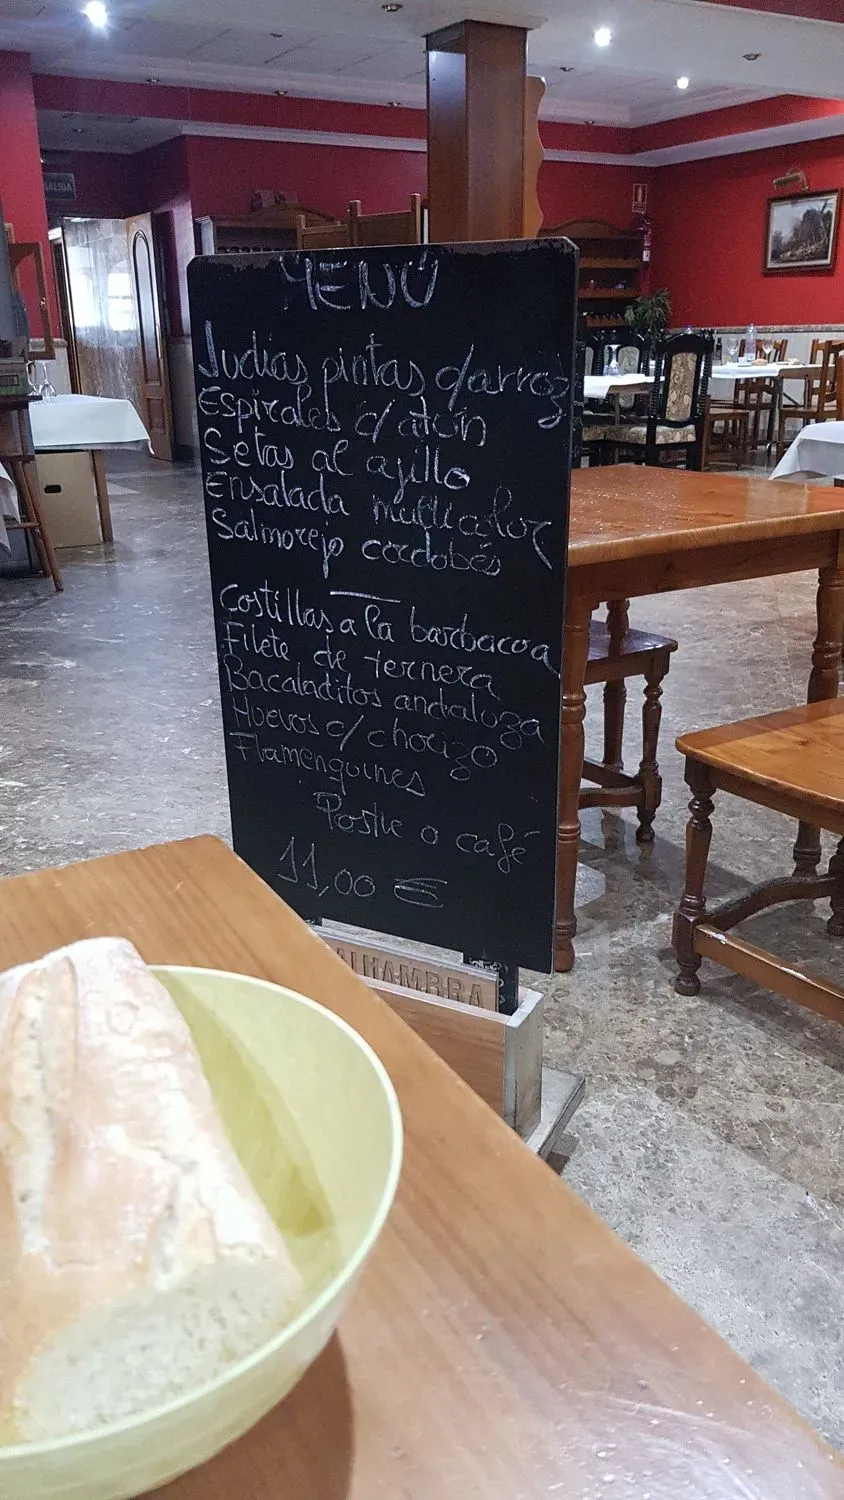 SALIDA
MENÚ
Judías pintas c/arroz
Espirales c/ atún
Setas al ajillo
Ensalada multicolor
Salmorejo cordobés
Costillas a la barbacoa
Filete de ternera
Bacaladitos andaluza
Huevos c/ chorizo
Flamenquines
Postre o café
11,00 €
ALHAMBRA